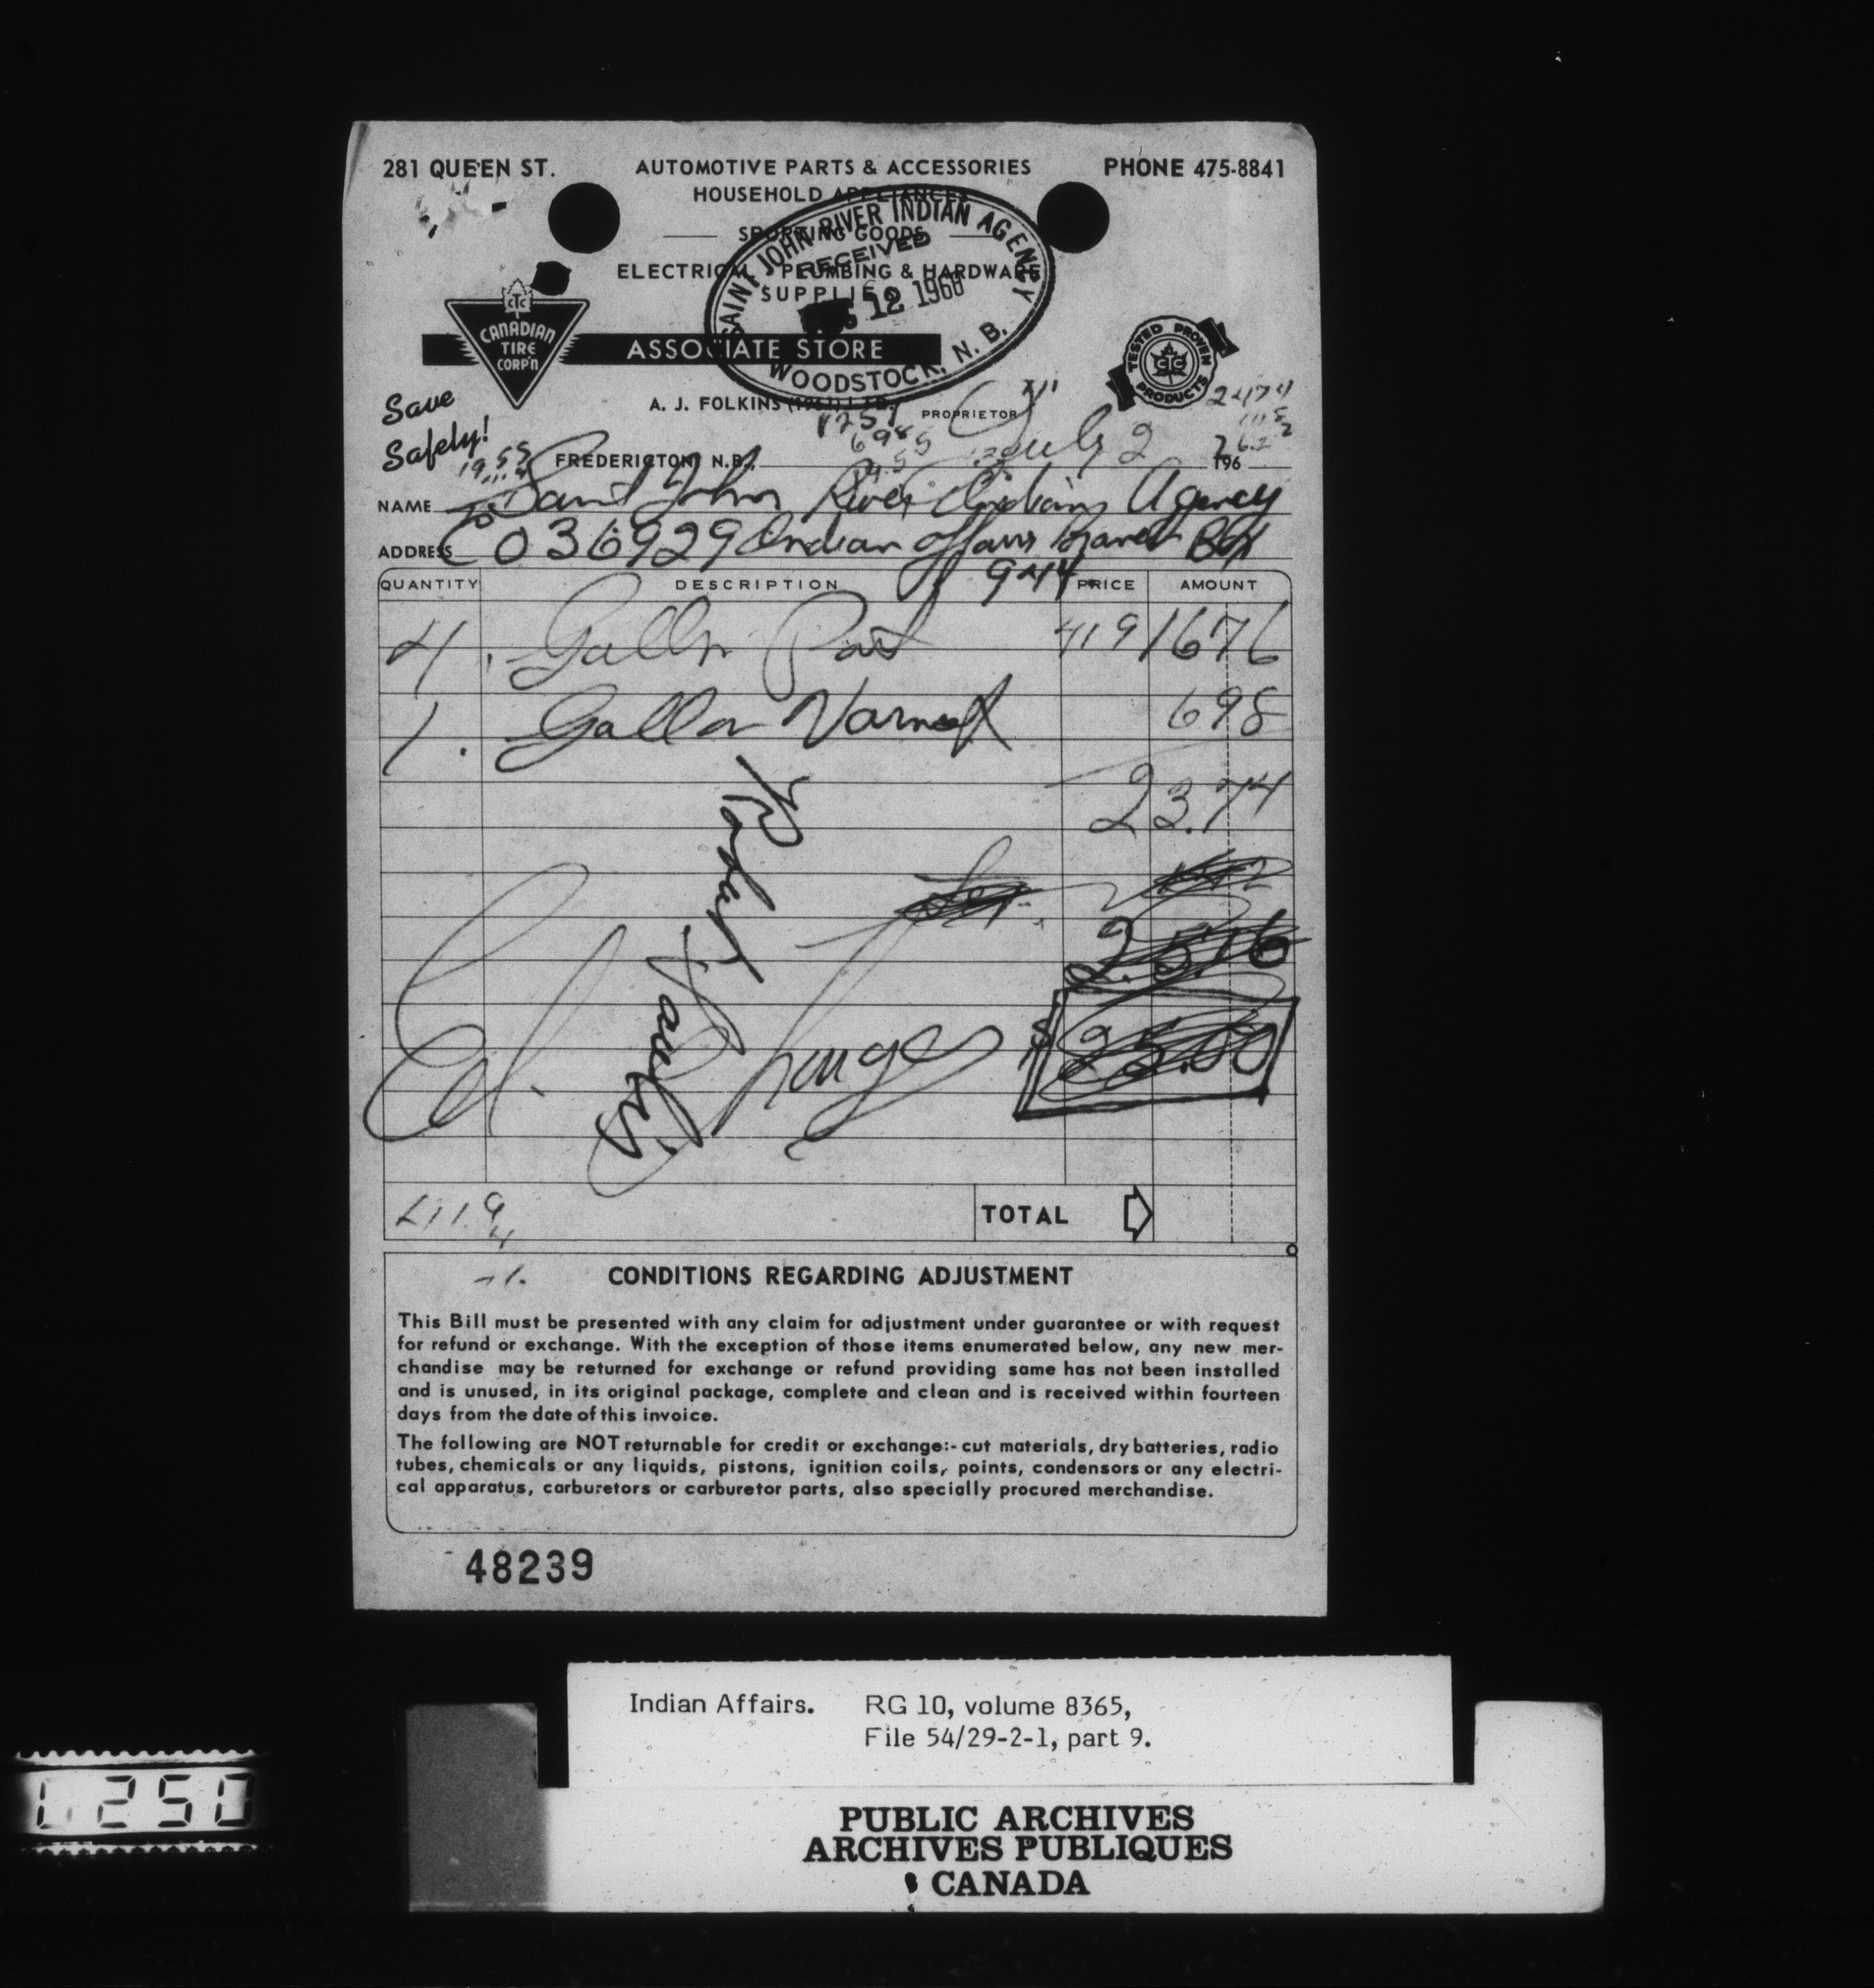 281 QUEEN ST. AUTOMOTIVE PARTS & ACCESSORIES PHONE 475-8841
HOUSEHOLD APPLIANCES
SPORTING GOODS
ELECTRICAL PLUMBING & HARDWARE
SUPPLIES
SAINT JOHN RIVER INDIAN AGENCY
RECEIVED
12 1966
WOODSTOCK, N. B.
CTC
CANADIAN
TIRE
CORP'N
ASSOCIATE STORE
TESTED PROVEN
CTC
PRODUCTS
Save
Safely!
A. J. FOLKINS (1961) LTD. PROPRIETOR
FREDERICTON, N.B., July 2 196
NAME Saint John River Indian Agency
ADDRESS CO36929 Indian Affairs Branch Box
QUANTITY DESCRIPTION PRICE AMOUNT
4 Gallon 419 1676
1. Gallon 698
23.74
Robert
25.16
$ 25.00
4.19
4
TOTAL
CONDITIONS REGARDING ADJUSTMENT
This Bill must be presented with any claim for adjustment under guarantee or with request
for refund or exchange. With the exception of those items enumerated below, any new mer-
chandise may be returned for exchange or refund providing same has not been installed
and is unused, in its original package, complete and clean and is received within fourteen
days from the date of this invoice.
The following are NOT returnable for credit or exchange:- cut materials, dry batteries, radio
tubes, chemicals or any liquids, pistons, ignition coils, points, condensors or any electri-
cal apparatus, carburetors or carburetor parts, also specially procured merchandise.
48239
Indian Affairs. RG 10, volume 8365,
File 54/29-2-1, part 9.
PUBLIC ARCHIVES
ARCHIVES PUBLIQUES
CANADA